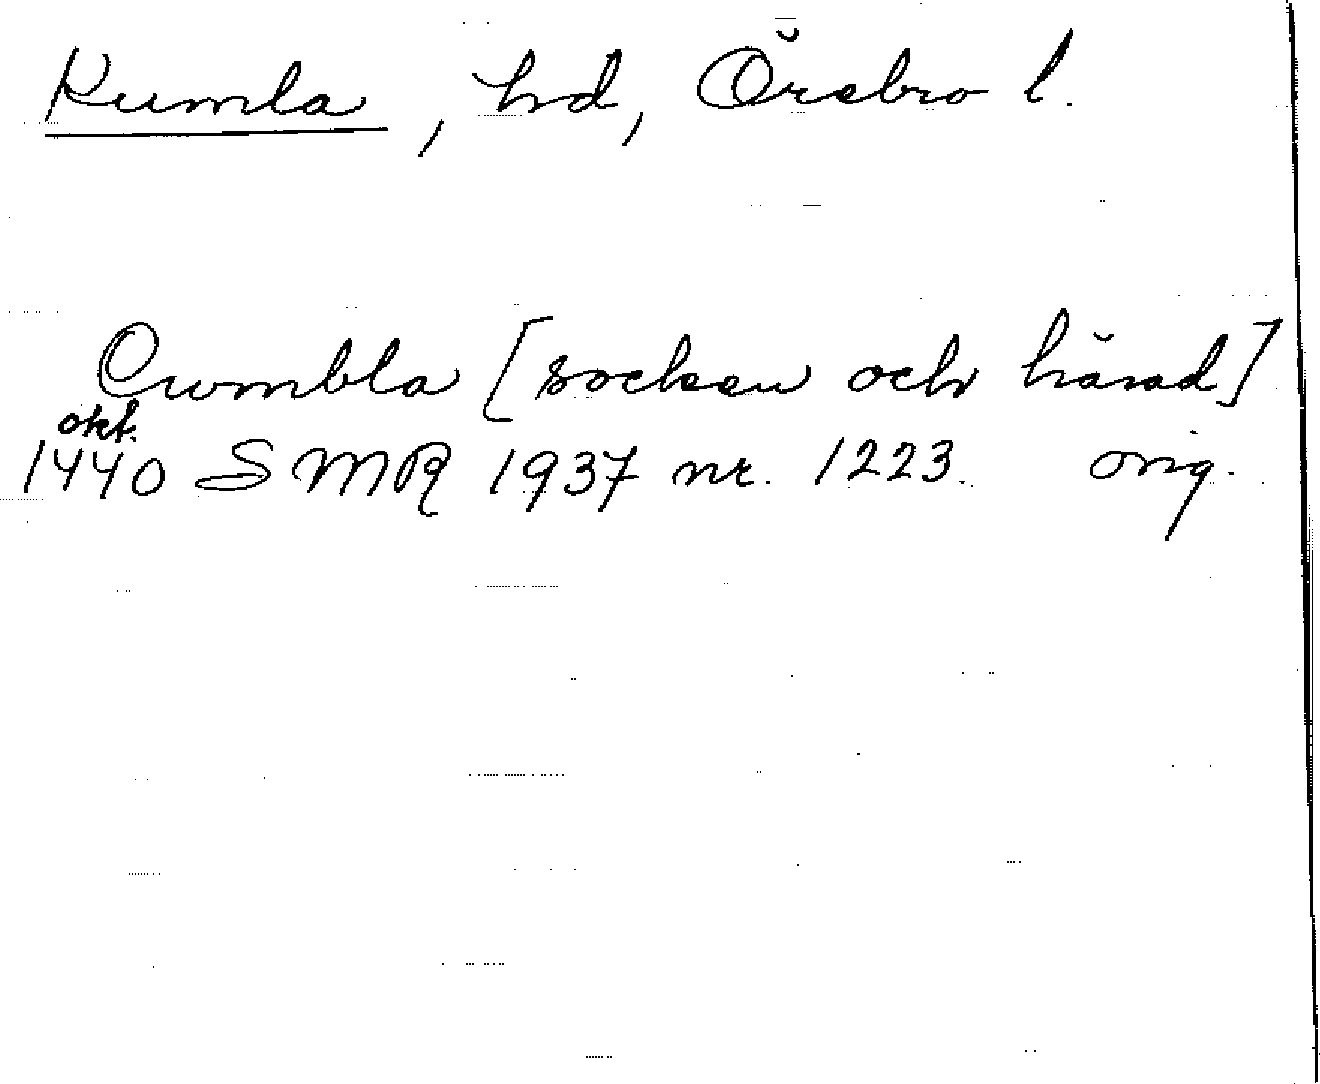 Kumla, hd, Örebro l.
Cumbla [socken och härad]
okt.
1440 SMR 1937 nr. 1223. orig.